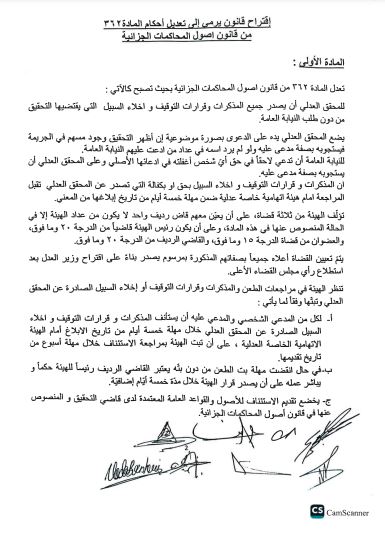 إقتراح قانون يرمي إلى تعديل أحكام المادة ٣٦٢
من قانون إصول المحاكمات الجزائية
المادة الأولى :
تعدل المادة ٣٦٢ من قانون اصول المحاكمات الجزائية بحيث تصبح كالآتي:
للمحقق العدلي أن يصدر جميع المذكرات وقرارات التوقيف و اخلاء السبيل التي يقتضيها التحقيق
من دون طلب النيابة العامة.
يضع المحقق العدلي يده على الدعوى بصورة موضوعية إن أظهر التحقيق وجود مسهم في الجريمة
فيستجوبه بصفة مدعى عليه ولو لم يرد اسمه في عداد من ادعت عليهم النيابة العامة.
للنيابة العامة أن تدعي لاحقاً في حق أيّ شخص أغفلته في ادعائها الأصلي وعلى المحقق العدلي أن
يستجوبه بصفة مدعى عليه.
ان المذكرات و قرارات التوقيف و اخلاء السبيل بحق او بكفالة التي تصدر عن المحقق العدلي تقبل
المراجعة امام هيئة اتهامية خاصة عدلية ضمن مهلة خمسة أيام من تاريخ إبلاغها من المعني.
تؤلّف الهيئة من ثلاثة قضاة، على أن يعيّن معهم قاض رديف واحد لا يكون من عداد الهيئة إلا في
الحالة المنصوص عنها في هذه المادة، وعلى أن يكون رئيس الهيئة قاضياً من الدرجة ٢٠ وما فوق،
والعضوان من قضاة الدرجة ١٥ وما فوق، والقاضي الرديف من الدرجة ٢٠ وما فوق.
يتم تعيين القضاة أعلاه جميعاً بصفاتهم المذكورة بمرسوم يصدر بناءً على اقتراح وزير العدل بعد
استطلاع رأي مجلس القضاء الأعلى.
تنظر الهيئة في مراجعات الطعن والمذكرات وقرارات التوقيف أو إخلاء السبيل الصادرة عن المحقق
العدلي وتبتّها وفقاً لما يأتي :
أ- لكل من المدعي الشخصي والمدعى عليه أن يستأنف المذكرات و قرارات التوقيف و اخلاء
السبيل الصادرة عن المحقق العدلي خلال مهلة خمسة أيام من تاريخ الابلاغ أمام الهيئة
الاتهامية الخاصة العدلية ، على أن تبت الهيئة بمراجعة الاستئناف خلال مهلة أسبوع من
تاريخ تقديمها.
ب- في حال انقضت مهلة بت الطعن من دون بتّه يعتبر القاضي الرديف رئيساً للهيئة حكماً و
يباشر عمله على أن يصدر قرار الهيئة خلال مدّة خمسة أيام إضافيّة.
ج- يخضع تقديم الاستئناف للأصول والقواعد العامة المعتمدة لدى قاضي التحقيق و المنصوص
عنها في قانون أصول المحاكمات الجزائية.
CS CamScanner